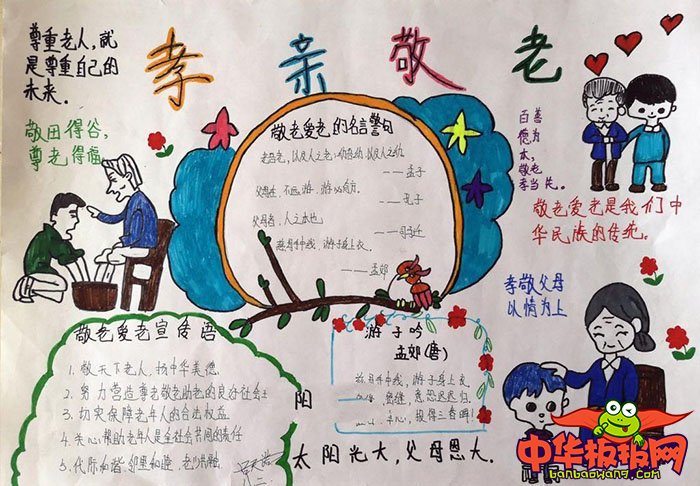 孝亲敬老
尊重老人,就
是尊重自己的
未来。
敬田得谷,
尊老得福
敬老爱老的名言警句
老吾老,以及人之老;幼吾幼,以及人之幼。
——孟子
父母在,不远游,游必有方。
——孔子
父母者,人之本也
——司马迁
慈母手中线,游子身上衣。
——孟郊
百善
德为
本,
敬老
孝当先。
敬老爱老是我们中
华民族的传统。
孝敬父母
以情为上
敬老爱老宣传语
1.敬天下老人,扬中华美德
2.努力营造尊老敬老助老的良好社会
3.切实保障老年人的合法权益
4.关心帮助老年人是全社会共同的责任
5.代际和谐,邻里和睦,老少
游子吟
孟郊(唐)
慈母手中线,游子身上衣。
密缝,意恐迟迟归。
心,报得三春晖!
阳
太阳光大,父母恩大。
中华板报网
banbaowang.com